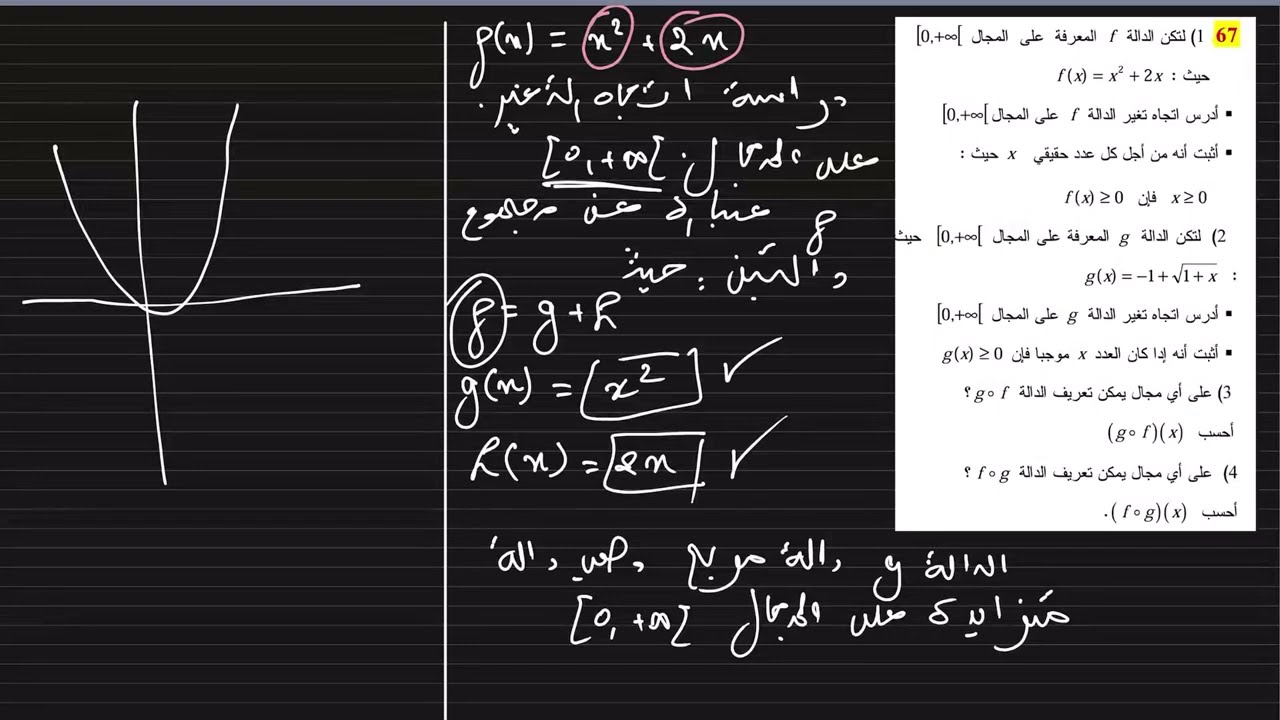 67 1) لتكن الدالة f المعرفة على المجال [0,+∞[
حيث : f(x) = x² + 2x
▪ أدرس اتجاه تغير الدالة f على المجال [0,+∞[
▪ أثبت أنه من أجل كل عدد حقيقي x حيث :
x ≥ 0 فإن f(x) ≥ 0
2) لتكن الدالة g المعرفة على المجال [0,+∞[ حيث
: g(x) = −1 + √(1+x)
▪ أدرس اتجاه تغير الدالة g على المجال [0,+∞[
▪ أثبت أنه إدا كان العدد x موجبا فإن g(x) ≥ 0
3) على أي مجال يمكن تعريف الدالة g∘f ؟
أحسب (g∘f)(x)
4) على أي مجال يمكن تعريف الدالة f∘g ؟
أحسب (f∘g)(x).
f(x) = x² + 2x
دراسة اتجاه الة تغير.
على المجال: [0,+∞[
f عبارة عن مجموع
دالتين: حيث
f = g + h
g(x) = x²
h(x) = 2x
الدالة g دالة مربع وهي دالة
متزايدة على المجال [0,+∞[